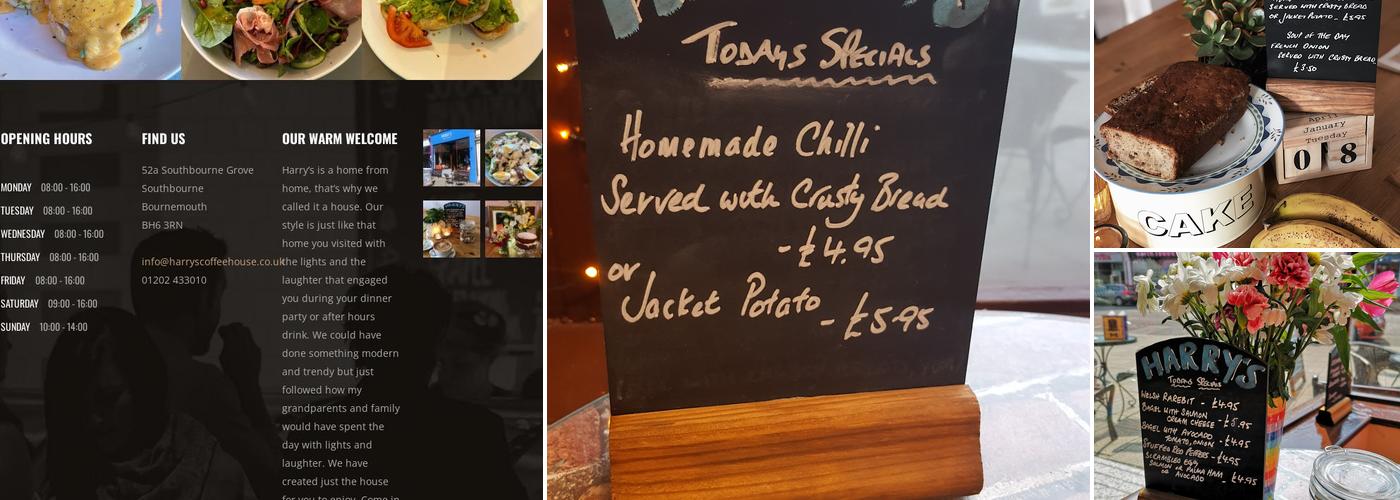 OPENING HOURS
MONDAY 08:00 - 16:00
TUESDAY 08:00 - 16:00
WEDNESDAY 08:00 - 16:00
THURSDAY 08:00 - 16:00
FRIDAY 08:00 - 16:00
SATURDAY 09:00 - 16:00
SUNDAY 10:00 - 14:00
FIND US
52a Southbourne Grove
Southbourne
Bournemouth
BH6 3RN
info@harryscoffeehouse.co.uk
01202 433010
OUR WARM WELCOME
Harry's is a home from
home, that's why we
called it a house. Our
style is just like that
home you visited with
the lights and the
laughter that engaged
you during your dinner
party or after hours
drink. We could have
done something modern
and trendy but just
followed how my
grandparents and family
would have spent the
day with lights and
laughter. We have
created just the house
for you to enjoy. Come in
Todays Specials
Homemade Chilli
Served with Crusty Bread
- £4.95
or
Jacket Potato
- £5.95
SERVED WITH CRUSTY BREAD
OR JACKET POTATO - £5.95
SOUP OF THE DAY
FRENCH ONION
SERVED WITH CRUSTY BREAD
£3.50
April
January
Tuesday
0 8
CAKE
HARRY'S
Todays Specials
WELSH RAREBIT - £4.95
BAGEL WITH SALMON
CREAM CHEESE - £5.95
BAGEL WITH AVOCADO
TOMATO, ONION - £4.95
STUFFED RED PEPPERS - £4.95
SCRAMBLED EGG
SALMON OR PARMA HAM
OR AVOCADO - £4.95